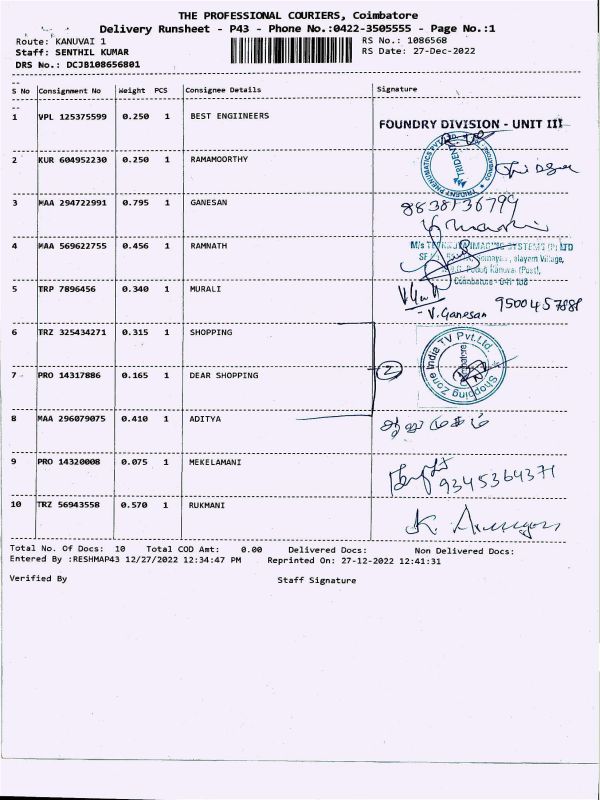 THE PROFESSIONAL COURIERS, Coimbatore
Delivery Runsheet - P43 - Phone No.:0422-3505555 - Page No.:1
Route: KANUVAI 1 RS No.: 1086568
Staff: SENTHIL KUMAR RS Date: 27-Dec-2022
DRS No.: DCJB108656801
S No Consignment No Weight PCS Consignee Details Signature
1 VPL 125375599 0.250 1 BEST ENGIINEERS
FOUNDRY DIVISION - UNIT III
2 KUR 604952230 0.250 1 RAMAMOORTHY
TRIDENT PNEUMATICS PVT. LTD
3 MAA 294722991 0.795 1 GANESAN 8838136799
4 MAA 569622755 0.456 1 RAMNATH
M/s IMAGING SYSTEMS (P) LTD
Somayampalayam Village,
Kanuvai (Post),
Coimbatore - 641 108
5 TRP 7896456 0.340 1 MURALI
- V. Ganesan 9500457888
6 TRZ 325434271 0.315 1 SHOPPING
Shopping Zone India TV Pvt.Ltd
Coimbatore
7 PRO 14317886 0.165 1 DEAR SHOPPING 2
8 MAA 296079075 0.410 1 ADITYA
9 PRO 14320008 0.075 1 MEKELAMANI 9345364371
10 TRZ 56943558 0.570 1 RUKMANI
Total No. Of Docs: 10 Total COD Amt: 0.00 Delivered Docs: Non Delivered Docs:
Entered By :RESHMAP43 12/27/2022 12:34:47 PM Reprinted On: 27-12-2022 12:41:31
Verified By Staff Signature